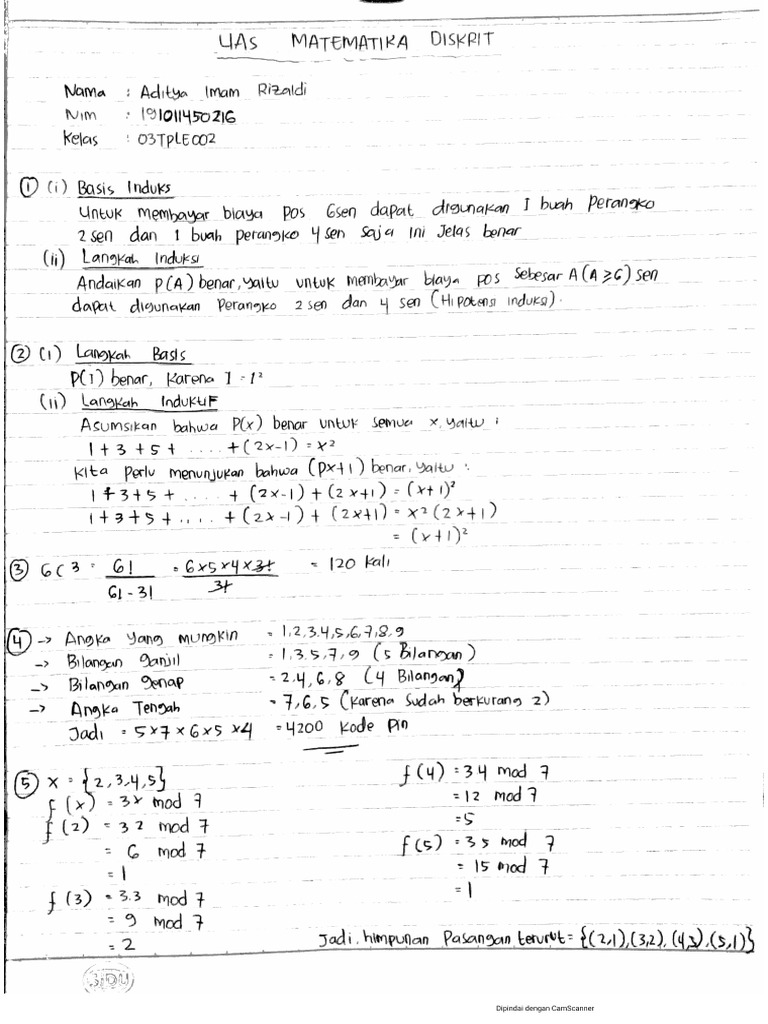 UAS MATEMATIKA DISKRIT
Nama : Aditya Imam Rizaldi
Nim : 191011450216
Kelas : 03TPLE002
① (i) Basis Induks
Untuk membayar biaya pos 6sen dapat digunakan 1 buah Perangko
2 sen dan 1 buah perangko 4 sen saja ini Jelas benar
(ii) Langkah Induksi
Andaikan P(A) benar, yaitu untuk membayar biaya pos sebesar A (A ≥ 6) sen
dapat digunakan Perangko 2 sen dan 4 sen (Hipotensi induksi).
② (i) Langkah Basis
P(1) benar, Karena 1 = 1²
(ii) Langkah Induktif
Asumsikan bahwa P(x) benar untuk semua x, yaitu :
1 + 3 + 5 + .... + (2x-1) = x²
Kita Perlu menunjukan bahwa (Px+1) benar, yaitu :
1 + 3 + 5 + .... + (2x-1) + (2x+1) = (x+1)²
1 + 3 + 5 + .... + (2x-1) + (2x+1) = x² (2x+1)
= (x+1)²
③ 6C3 = 6! / 6! - 3! = 6×5×4×3! / 3! = 120 Kali
④ → Angka yang mungkin = 1,2,3,4,5,6,7,8,9
→ Bilangan ganjil = 1,3,5,7,9 (5 Bilangan)
→ Bilangan Genap = 2,4,6,8 (4 Bilangan)
→ Angka Tengah = 7,6,5 (Karena Sudah berkurang 2)
Jadi = 5×7×6×5×4 = 4200 Kode Pin
⑤ X = {2,3,4,5}
f(x) = 3x mod 7
f(2) = 32 mod 7
= 6 mod 7
= 1
f(3) = 3.3 mod 7
= 9 mod 7
= 2
f(4) = 34 mod 7
= 12 mod 7
= 5
f(5) = 35 mod 7
= 15 mod 7
= 1
Jadi, himpunan Pasangan terurut = {(2,1),(3,2),(4,3),(5,1)}
SIDU
Dipindai dengan CamScanner